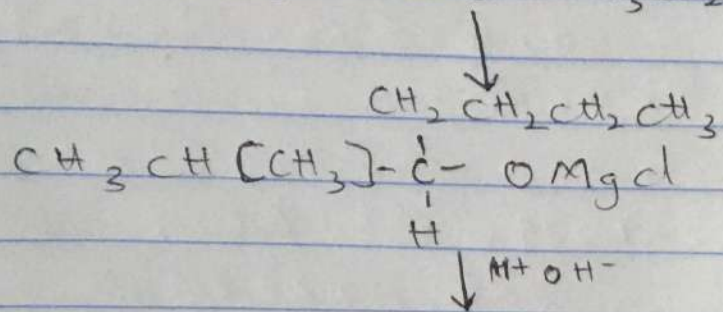 3 2
CH2 CH2 CH2 CH3
CH3 CH [CH3] - C - O Mg Cl
H
M+ OH-